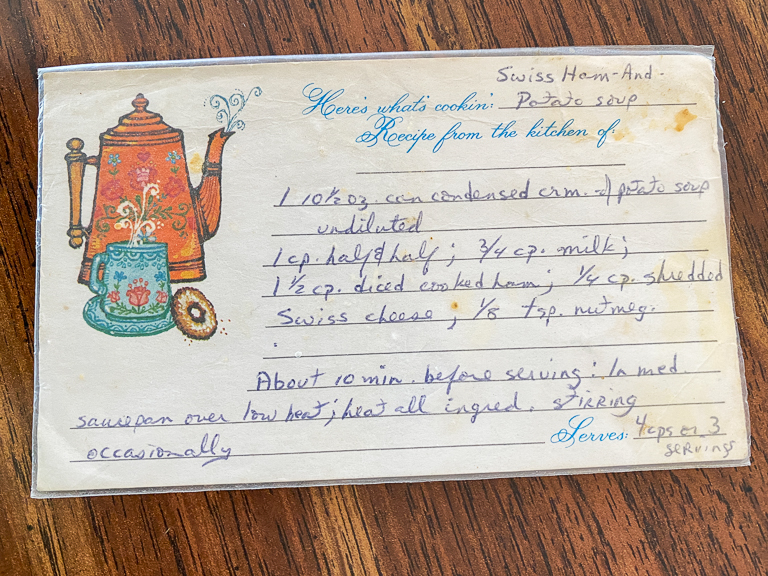 Swiss Ham-And-
Here's what's cookin': Potato soup
Recipe from the kitchen of:
1 10½ oz. can condensed crm. of potato soup
undiluted
1 cp. half & half; ¾ cp. milk;
1 ½ cp. diced cooked ham; ¼ cp. shredded
Swiss cheese; ⅛ tsp. nutmeg.
About 10 min. before serving: In med.
saucepan over low heat; heat all ingred. stirring
occasionally
Serves: 4 cps or 3
servings